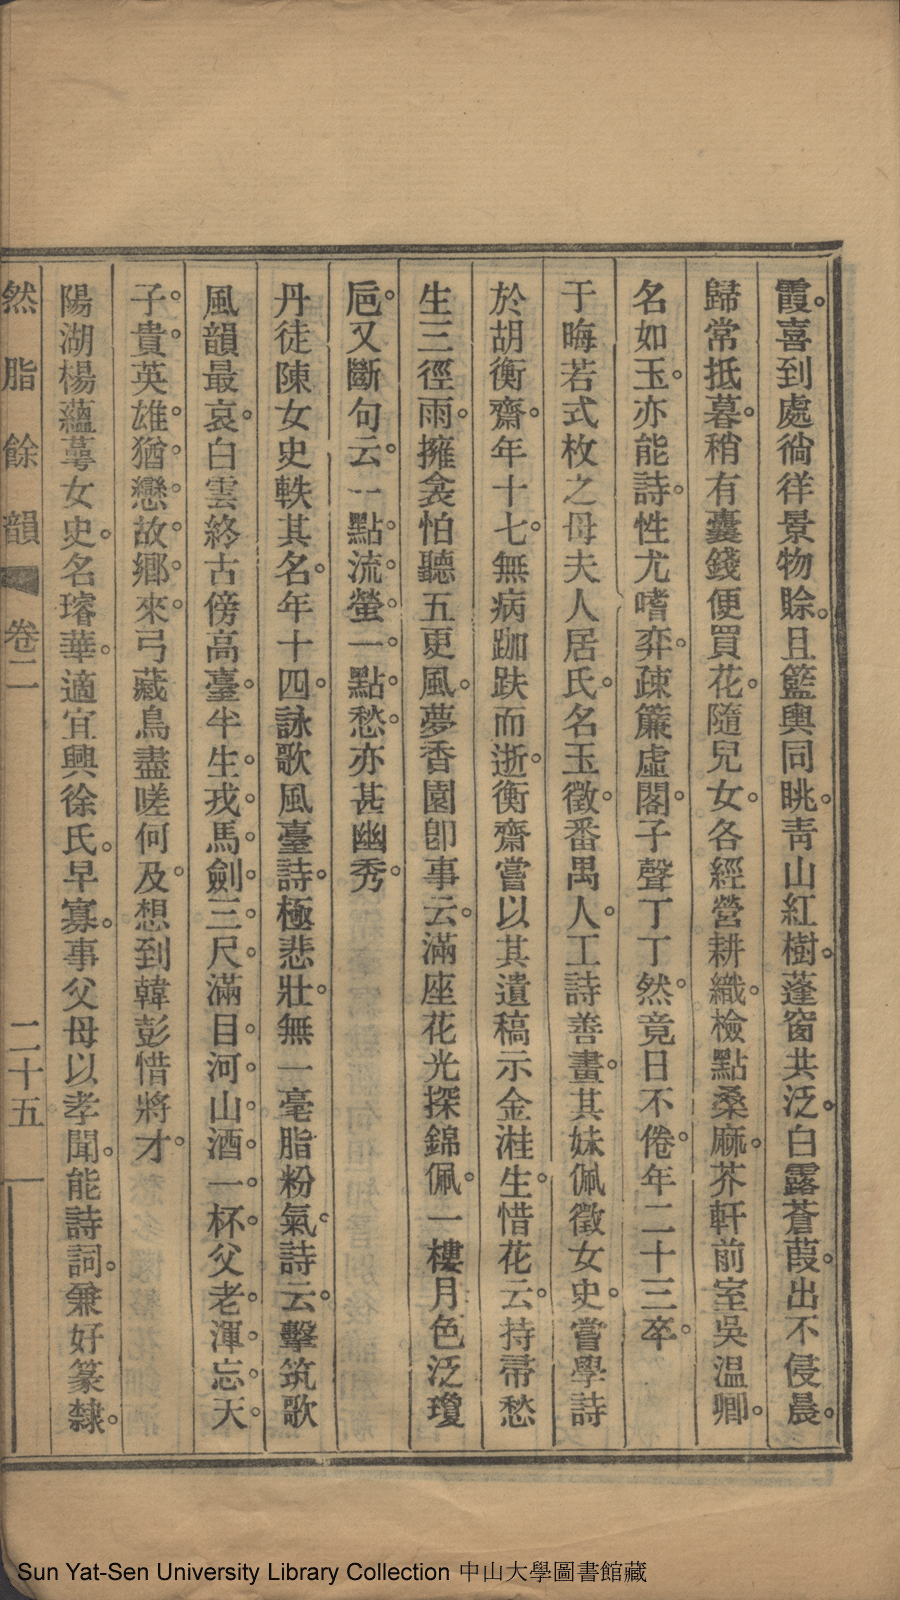 霞。喜到處徜徉景物賒。且籃輿同眺。靑山紅樹。蓬窗共泛。白露蒼葭。出不侵晨。
歸常抵暮。稍有囊錢便買花。隨兒女。各經營耕織。檢點桑麻。芥軒前室吳温卿。
名如玉。亦能詩。性尤嗜弈。疎簾虛閣。子聲丁丁然。竟日不倦。年二十三卒。
于晦若式枚之母夫人居氏。名玉徵。番禺人。工詩善畫。其妹佩徵女史。嘗學詩
於胡衡齋。年十七。無病跏趺而逝。衡齋嘗以其遺稿示金溎生。惜花云。持帚愁
生三徑雨。擁衾怕聽五更風。夢香園卽事云。滿座花光探錦佩。一樓月色泛瓊
巵。又斷句云。一點流螢一點愁。亦甚幽秀。
丹徒陳女史軼其名。年十四。詠歌風臺詩。極悲壯。無一毫脂粉氣。詩云。擊筑歌
風韻最哀。白雲終古傍高臺。半生戎馬劍三尺。滿目河山酒一杯。父老渾忘天
子貴。英雄猶戀故鄉來。弓藏鳥盡嗟何及。想到韓彭惜將才。
陽湖楊蘊萼女史。名璿華。適宜興徐氏。早寡。事父母以孝聞。能詩詞。兼好篆隸。
然脂餘韻 卷二 二十五
Sun Yat-Sen University Library Collection 中山大學圖書館藏